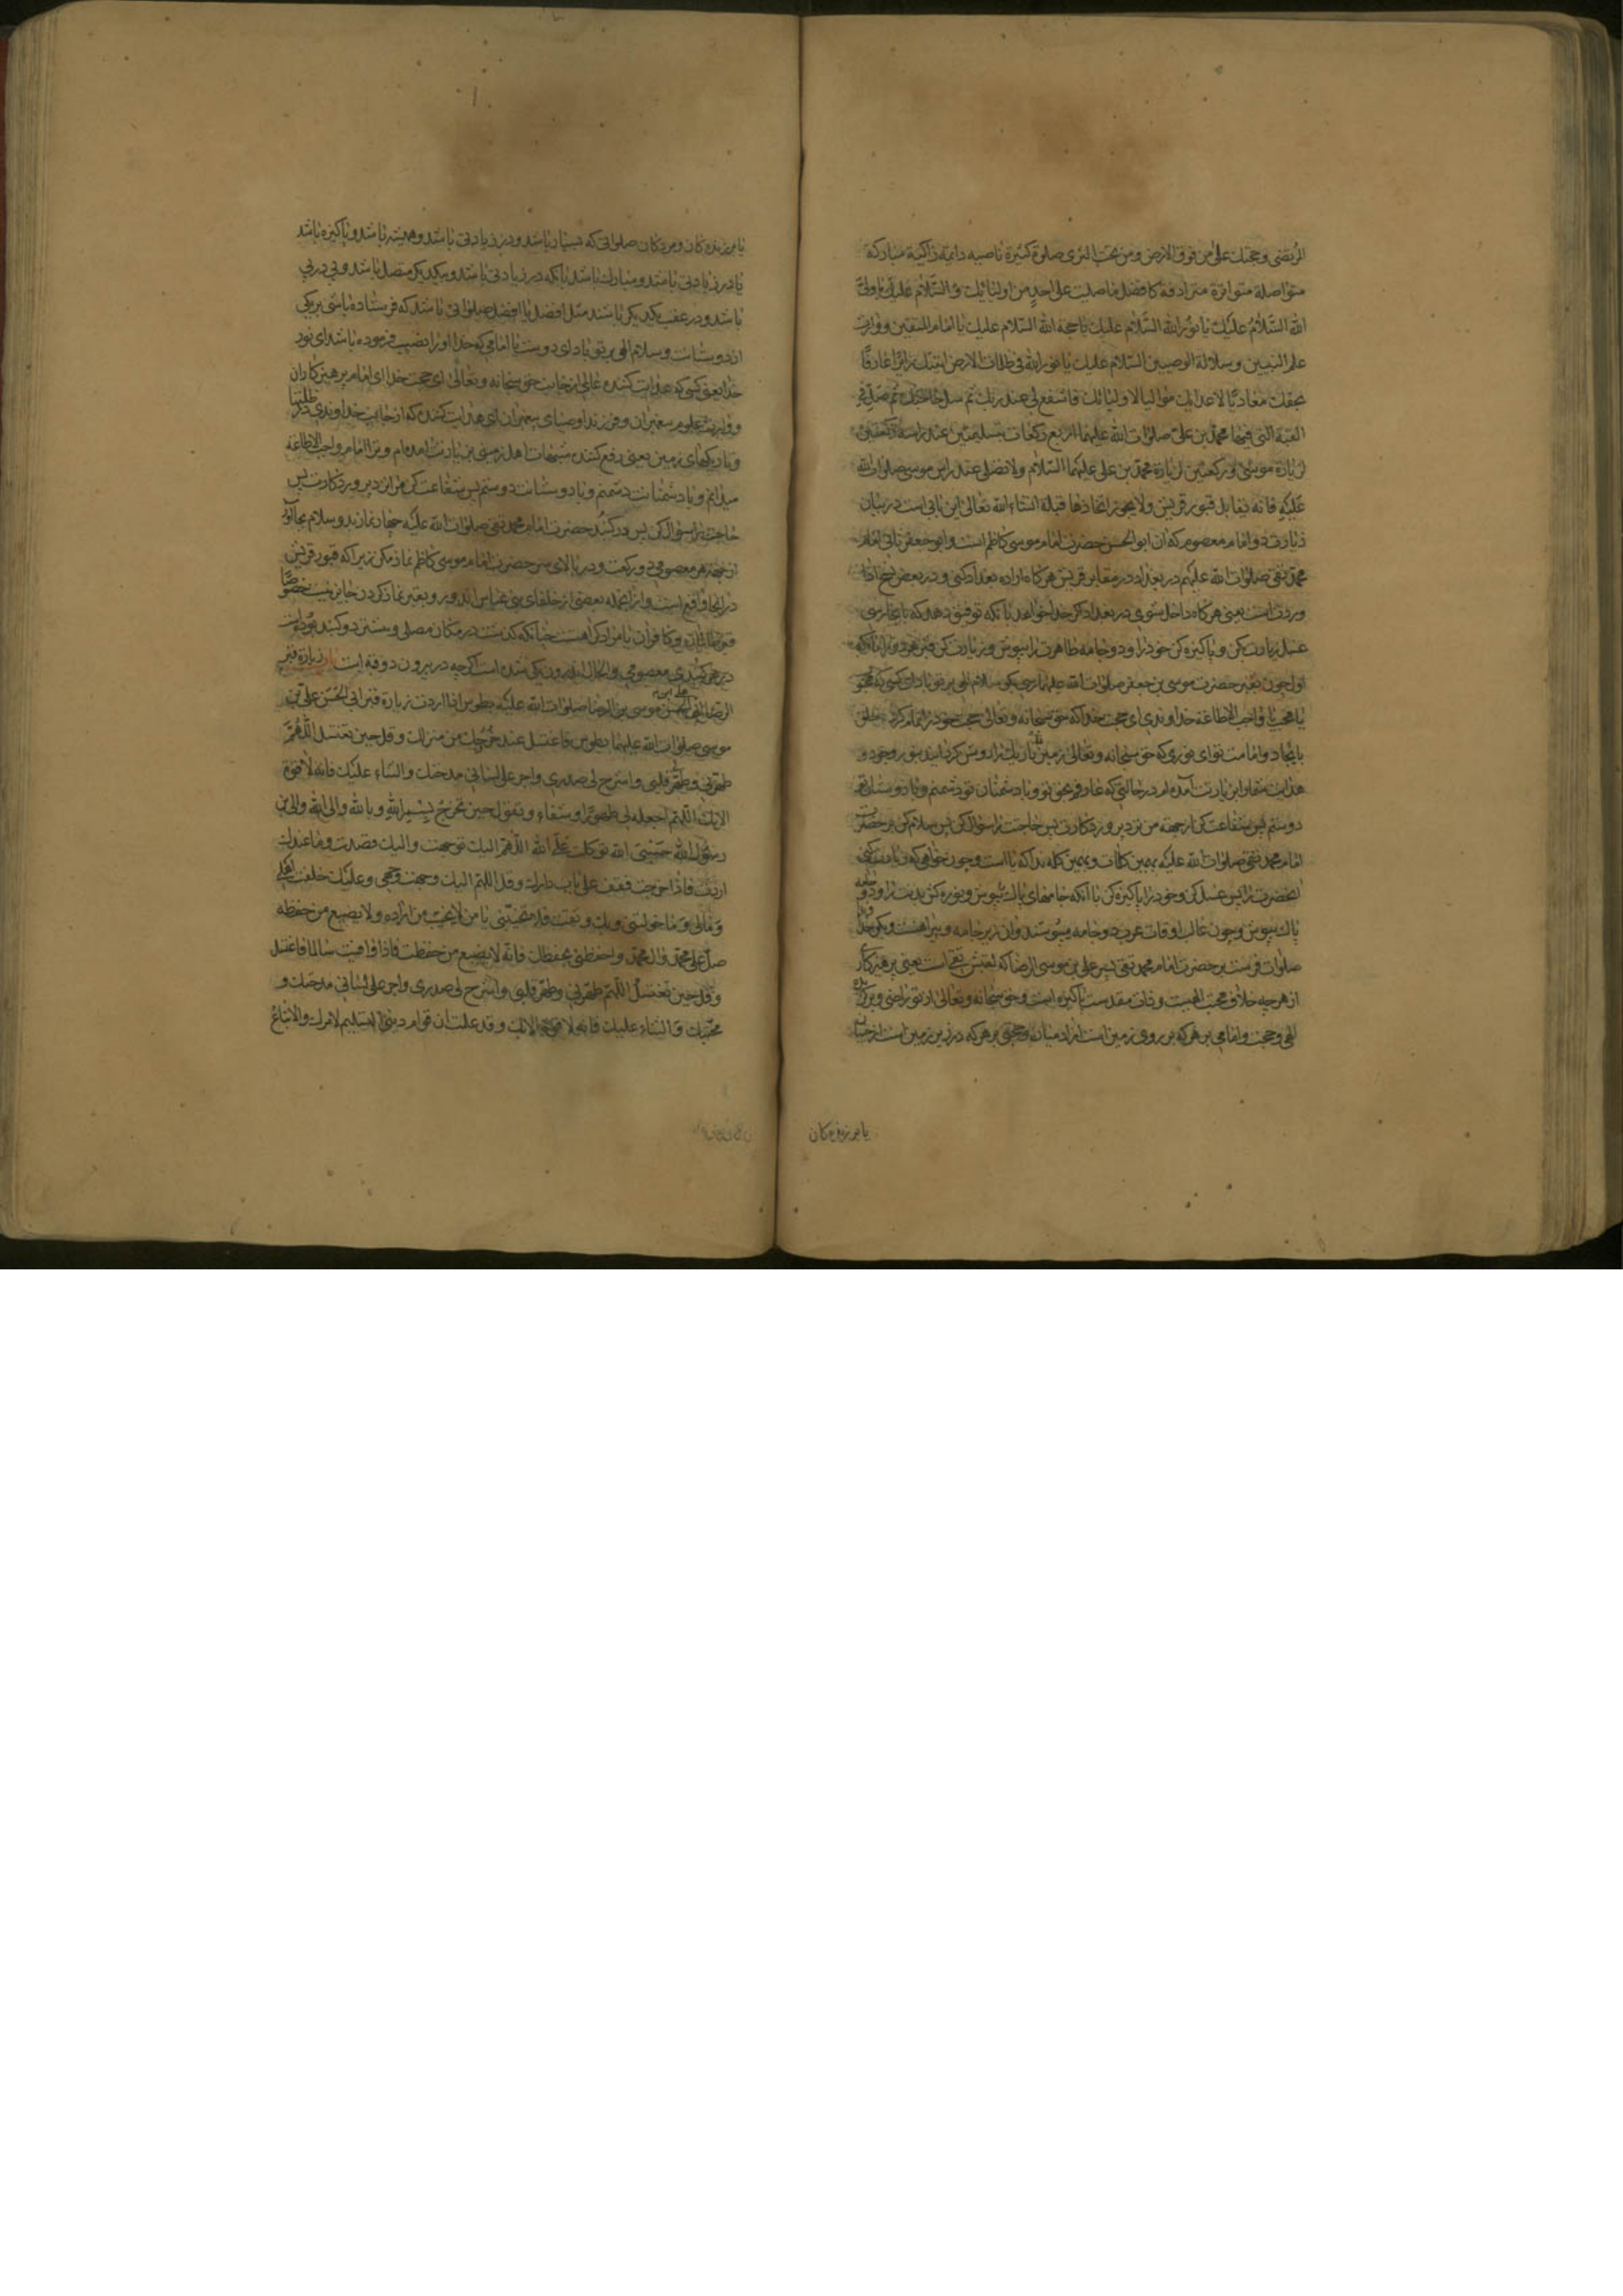 المرتضی وحجتک علی من فوق الارض ومن تحت الثری صلوة کثیرة نامیه دایمة زاکیة مبارکة
متواصلة متواترة مترادفة کافضل ماصلیت علی احدٍ من اولیائک والسّلام علیک یا ولیّ
الله السّلام علیک یا نور الله السّلام علیک یا حجة الله السّلام علیک یا امام المتقین ووارث
علم النبیین وسلالة الوصیین السّلام علیک یا نور الله فی ظلمات الارض اتیتک زائرًا عارفًا
بحقک معادیًا لاعدائک موالیا لاولیائک فاشفع لی عند ربک ثم سل حاجتک ثم صلّ فی
القبة التی فیها محمّد بن علیّ صلوات الله علیهما اربع رکعات بتسلیمتین عند راسه رکعتین
لزیارة موسی ورکعتین لزیارة محمّد بن علی علیهما السّلام ولا تصلّ عند راس موسی صلوات الله
علیه فانه یقابل قبور قریش ولا یجوز اتخاذها قبلة انشاء الله تعالی این بابی است در بیان
زیارت دو امام معصوم که آن ابوالحسن حضرت امام موسی کاظم است وابوجعفر ثانی امام
محمّد تقی صلوات الله علیهم در بغداد در مقابر قریش هرگاه اراده بغداد کنی ودر بعض نسخ اذا
وردت است یعنی هرگاه داخل شوی در بغداد اگر خدا خواهد بآنکه توفیق دهد که
غسل زیارت بکن وپاکیزه کن خود را ودو جامه طاهرت را بپوش وزیارت کن قبر هر دو را
اول چون بقبر حضرت موسی بن جعفر صلوات الله علیهما رسی بکو سلام الهی بر تو باد ای کسی که
یا محب یا واجب الاطاعة خداوندی ای حجت خدا که حق سبحانه وتعالی حجت خود را تمام کرد بر خلق
بایجاد وامامت تو ای نوری که حق سبحانه وتعالی زمین تاریک را روشن کردانید بنور وجود و
هدایت شما وابن یارت آمده ام در حالتی که عارفم بحق تو وبا دشمنان تو دشمنم وبا دوستانت
دوستم پس شفاعت کن از جهة من نزد پروردکارت پس حاجت را سؤال کن پس سلام کن بر حضرت
امام محمد تقی صلوات الله علیه بهمین کلمات وبهمین کله بدا که یا است وچون خواهی که زیارت کنی
انحضرت را پس غسل کن وخود را پاکیزه کن با آنکه جامهای پاک بپوش ونوره کن بدنت را ودو جامه
پاک بپوش وچون غالب اوقات عرب دو جامه میپوشند وان زیر جامه وپیراهنست وبکو خدایا
صلوات فرست بر حضرت امام محمد تقی پسر علی بن موسی الرضا که لقبش تقی است یعنی پرهیزکار
از هر چه خلاف محبت الهیست وذات مقدست پاکیزه است وحق سبحانه وتعالی از تو راضی
الهی وحجت وامامی بر هر که بر روی زمین است از ادمیان وحجتی بر هر که در زیر زمین است از جنیان
یا بر زنده کان
یا بر زنده کان ومردکان صلواتی که بسیار باشد ودر زیادتی باشد وهمیشه باشد وپاکیزه باشد
یا در زیادتی باشد ومبارک باشد بآنکه در زیادتی باشد وبیکدیکر متصل باشد وپی در پی
باشد ودر عقب یکدیکر باشند مثل افضل یا افضل صلواتی باشد که فرستاده باشی بر یکی
از دوستانت وسلام الهی بر تو باد ای دوست یا امامی که خدا او را نصب فرموده باشد ای نور
خدا یعنی کسی که هدایت کننده عالمی از جانب حق سبحانه وتعالی ای حجت خدا ای امام پرهیزکاران
ووارث علوم پیغمبران وفرزند اوصیای پیغمبران ای هدایت کننده که از جانب خداوندی در ظلمتها
وتاریکهای زمین یعنی دفع کننده شبهات اهل زمینی بزیارت آمده ام وترا امام واجب الاطاعه
میدانم وبا دشمنانت دشمنم وبا دوستانت دوستم پس شفاعت کن مرا نزد پروردکارت پس
حاجت را سؤال کن پس در کنبد حضرت امام محمد تقی صلوات الله علیه چهار نماز بدو سلام بجا آور
از جهة هر معصومی دو رکعت ودر بالای سر حضرت امام موسی کاظم نماز مکن زیرا که قبور قریش
در انجا واقع است واز انجمله بعضی از خلفای بنی عباس اند وبقبر نماز کردن جایز نیست خصوصًا
قبرهای ایشان وکافران یا مراد کراهست چنانکه کذشت در مکان مصلی وپیشتر دو کنبد بوده است
در هر کنبدی معصومی والحال اندرون یکی شده است اکرچه در بیرون دو قبه است باب زیارة قبر
الرضا ابی الحسن علی بن موسی الرضا صلوات الله علیه بطوس اذا اردت زیارة قبر ابی الحسن علی بن
موسی صلوات الله علیهما بطوس فاغتسل عند خروجک من منزلک وقل حین تغتسل اللّهمّ
طهّرنی وطهّر قلبی واشرح لی صدری واجر علی لسانی مدحتک والثناء علیک فانه لا قوة
الا بک اللّهم اجعله لی طهورًا وشفاء وتقول حین تخرج بسم الله وبالله والی الله والی ابن
رسول الله حسبی الله توکلت علی الله اللّهم الیک توجهت والیک قصدت وما عندک
اردت فاذا خرجت فقف علی باب دارک وقل اللّهم الیک وجهت وجهی وعلیک خلفت اهلی
ومالی وما خولتنی وبک وثقت فلا تخیّبنی یا من لا یخیّب من اراده ولا یضیع من حفظه
صلّ علی محمّد وال محمّد واحفظنی بحفظک فانّه لا یضیع من حفظت فاذا وافیت سالما فاغتسل
وقل حین تغتسل اللّهم طهّرنی وطهّر قلبی واشرح لی صدری واجر علی لسانی مدحتک و
محبّتک والثناء علیک فانه لا قوّة الا بک وقد علمت ان قوام دینی التسلیم لامرک والاتباع